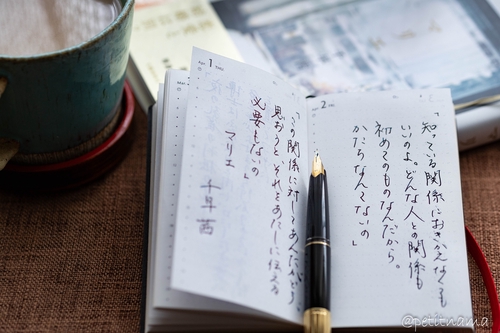 「知っている関係におきかえなくても
いいのよ。どんな人との関係も
初めてのものなんだから。
かたちなんてないの」
「この関係に対してあんたがどう
思おうと それをあたしに伝える
必要もないの」
マリエ
千早茜
1
2
@petitnama